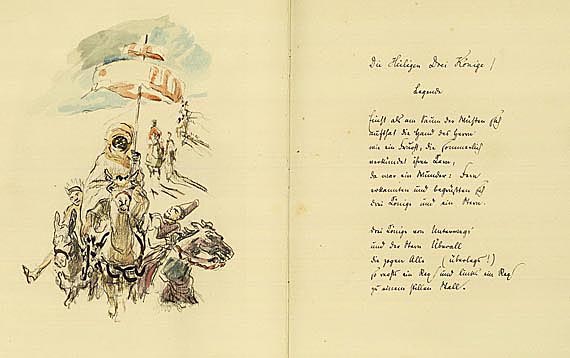 Die Heiligen Drei Könige /
Legende
Einst als am Saum der Wüsten sich
auftat die Hand des Herrn
wie ein Frucht, die sommerlich
verkündet ihren Kern,
da war ein Wunder: Fern
erkannten und begrüßten sich
drei Könige und ein Stern.
Drei Könige von Unterwegs
und der Stern Überall
die zogen Alle (überlegs!)
so rechts ein Rex und links ein Rex
zu einem stillen Stall.